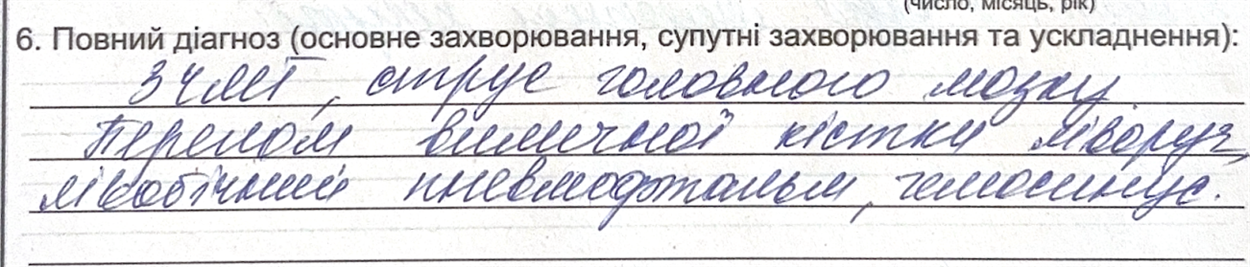 (число, місяць, рік)
6. Повний діагноз (основне захворювання, супутні захворювання та ускладнення):
ЗЧМТ, струс головного мозку.
Перелом виличної кістки ліворуч,
лівобічний пневмофтальм, гемосинус.